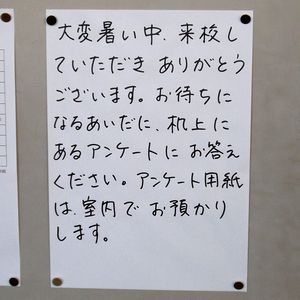 大変暑い中、来校し
ていただき ありがとう
ございます。お待ちに
なるあいだに、机上に
あるアンケートに お答え
ください。アンケート用紙
は、室内で お預かり
します。